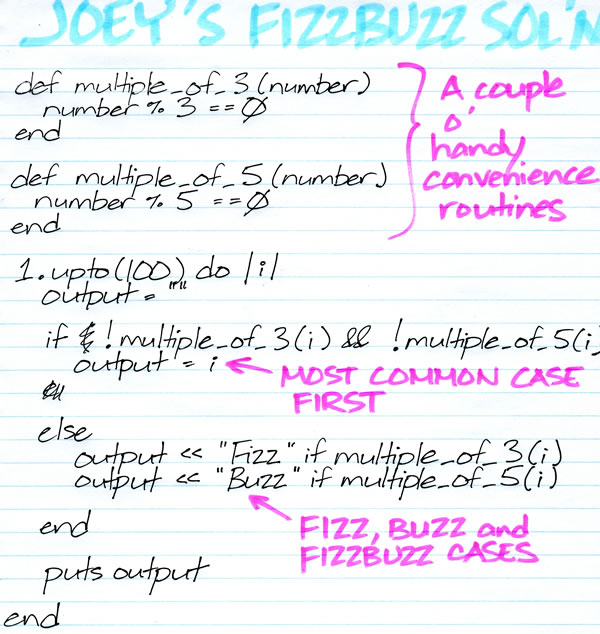 JOEY'S FIZZBUZZ SOL'N
def multiple_of_3(number)
number % 3 == 0
end
A couple
o'
handy
convenience
routines
def multiple_of_5(number)
number % 5 == 0
end
1.upto(100) do |i|
output = ""
if !multiple_of_3(i) && !multiple_of_5(i)
output = i
MOST COMMON CASE
FIRST
else
output << "Fizz" if multiple_of_3(i)
output << "Buzz" if multiple_of_5(i)
end
FIZZ, BUZZ and
FIZZBUZZ CASES
puts output
end